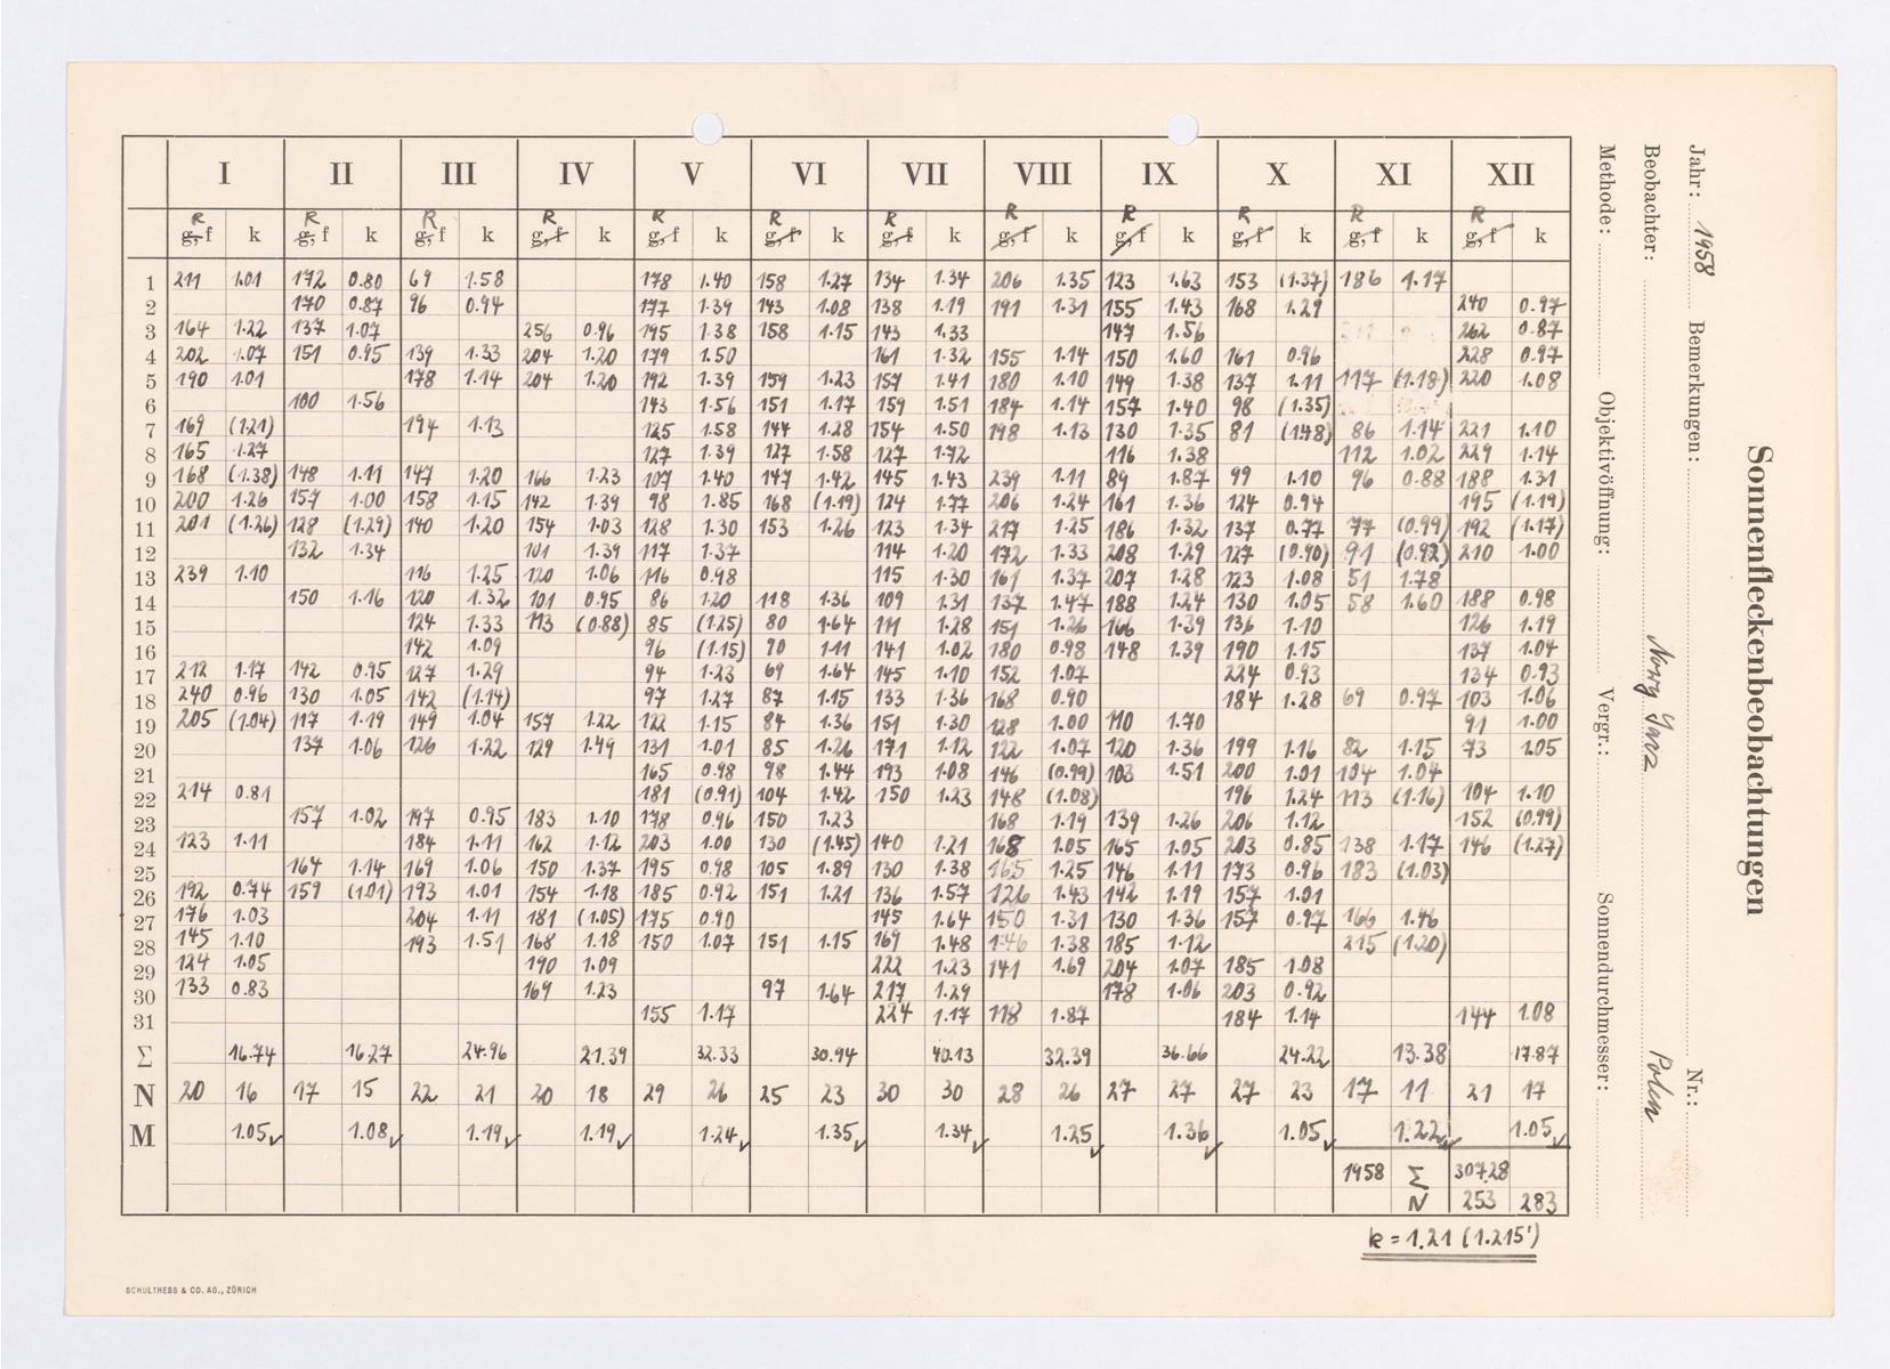 I II III IV V VI VII VIII IX X XI XII
R R R R R R R R R R R R
g, f k g, f k g, f k g, f k g, f k g, f k g, f k g, f k g, f k g, f k g, f k g, f k
1 211 1.01 172 0.80 69 1.58 178 1.40 158 1.27 134 1.34 206 1.35 123 1.63 153 (1.37) 186 1.17
2 170 0.87 96 0.94 177 1.39 143 1.08 138 1.19 191 1.31 155 1.43 168 1.29 240 0.97
3 164 1.22 137 1.07 256 0.96 195 1.38 158 1.15 143 1.33 147 1.56 262 0.87
4 202 1.07 151 0.95 139 1.33 204 1.20 179 1.50 161 1.32 155 1.14 150 1.60 161 0.96 228 0.97
5 190 1.01 178 1.14 204 1.20 192 1.39 159 1.23 157 1.41 180 1.10 149 1.38 137 1.11 117 (1.18) 220 1.08
6 100 1.56 143 1.56 151 1.17 159 1.51 184 1.14 157 1.40 98 (1.35)
7 169 (1.21) 194 1.13 125 1.58 144 1.28 154 1.50 198 1.13 130 1.35 81 (1.48) 86 1.14 221 1.10
8 165 1.27 127 1.39 127 1.58 127 1.72 116 1.38 112 1.02 229 1.14
9 168 (1.38) 148 1.11 147 1.20 166 1.23 107 1.40 147 1.42 145 1.43 239 1.11 89 1.87 99 1.10 96 0.88 188 1.31
10 200 1.26 157 1.00 158 1.15 142 1.39 98 1.85 168 (1.19) 124 1.77 206 1.24 161 1.36 124 0.94 195 (1.19)
11 201 (1.26) 128 (1.29) 140 1.20 154 1.03 128 1.30 153 1.26 123 1.34 217 1.25 186 1.32 137 0.77 77 (0.99) 192 (1.17)
12 132 1.34 101 1.39 117 1.37 114 1.20 172 1.33 208 1.29 127 (0.90) 91 (0.92) 210 1.00
13 239 1.10 116 1.25 120 1.06 116 0.98 115 1.30 161 1.37 207 1.28 123 1.08 51 1.78
14 150 1.16 120 1.32 101 0.95 86 1.20 118 1.36 109 1.31 137 1.47 188 1.24 130 1.05 58 1.60 188 0.98
15 124 1.33 113 (0.88) 85 (1.25) 80 1.64 111 1.28 151 1.26 166 1.39 136 1.10 126 1.19
16 142 1.09 96 (1.15) 90 1.11 141 1.02 180 0.98 148 1.39 190 1.15 137 1.04
17 212 1.17 142 0.95 127 1.29 94 1.23 69 1.64 145 1.10 152 1.07 224 0.93 134 0.93
18 240 0.96 130 1.05 142 (1.14) 97 1.27 87 1.15 133 1.36 168 0.90 184 1.28 69 0.97 103 1.06
19 205 (1.04) 117 1.19 149 1.04 157 1.22 122 1.15 84 1.36 151 1.30 128 1.00 110 1.70 91 1.00
20 137 1.06 126 1.22 129 1.49 131 1.01 85 1.26 171 1.12 122 1.07 120 1.36 199 1.16 82 1.15 73 1.05
21 165 0.98 98 1.44 193 1.08 146 (0.99) 103 1.51 200 1.01 104 1.04
22 214 0.81 181 (0.91) 104 1.42 150 1.23 148 (1.08) 196 1.24 113 (1.16) 104 1.10
23 157 1.02 197 0.95 183 1.10 178 0.96 150 1.23 168 1.19 139 1.26 206 1.12 152 (0.99)
24 123 1.11 184 1.11 162 1.12 203 1.00 130 (1.45) 140 1.21 168 1.05 165 1.05 203 0.85 138 1.17 146 (1.27)
25 164 1.14 169 1.06 150 1.37 195 0.98 105 1.89 130 1.38 165 1.25 146 1.11 173 0.96 183 (1.03)
26 192 0.74 159 (1.01) 193 1.01 154 1.18 185 0.92 151 1.21 136 1.57 126 1.43 142 1.19 157 1.01
27 176 1.03 204 1.11 181 (1.05) 175 0.90 145 1.64 150 1.31 130 1.36 157 0.97 166 1.46
28 145 1.10 193 1.51 168 1.18 150 1.07 151 1.15 169 1.48 146 1.38 185 1.12 215 (1.20)
29 124 1.05 190 1.09 222 1.23 141 1.69 204 1.07 185 1.08
30 133 0.83 169 1.23 97 1.64 217 1.29 178 1.06 203 0.92
31 155 1.17 224 1.17 118 1.87 184 1.14 144 1.08
Σ 16.74 16.27 24.96 21.39 32.33 30.94 40.13 32.39 36.66 24.22 13.38 17.87
N 20 16 17 15 22 21 20 18 29 26 25 23 30 30 28 26 27 27 27 23 17 11 21 17
M 1.05✓ 1.08✓ 1.19✓ 1.19✓ 1.24✓ 1.35✓ 1.34✓ 1.25✓ 1.36✓ 1.05✓ 1.22✓ 1.05✓
1958 Σ 307.28
N 253 283
k = 1.21 (1.215')
SCHULTHESS & CO. AG., ZÜRICH
Sonnenfleckenbeobachtungen
Jahr: 1958 Bemerkungen: Nr.:
Beobachter: Nowy Sącz Polen
Methode: Objektivöffnung: Vergr.: Sonnendurchmesser: